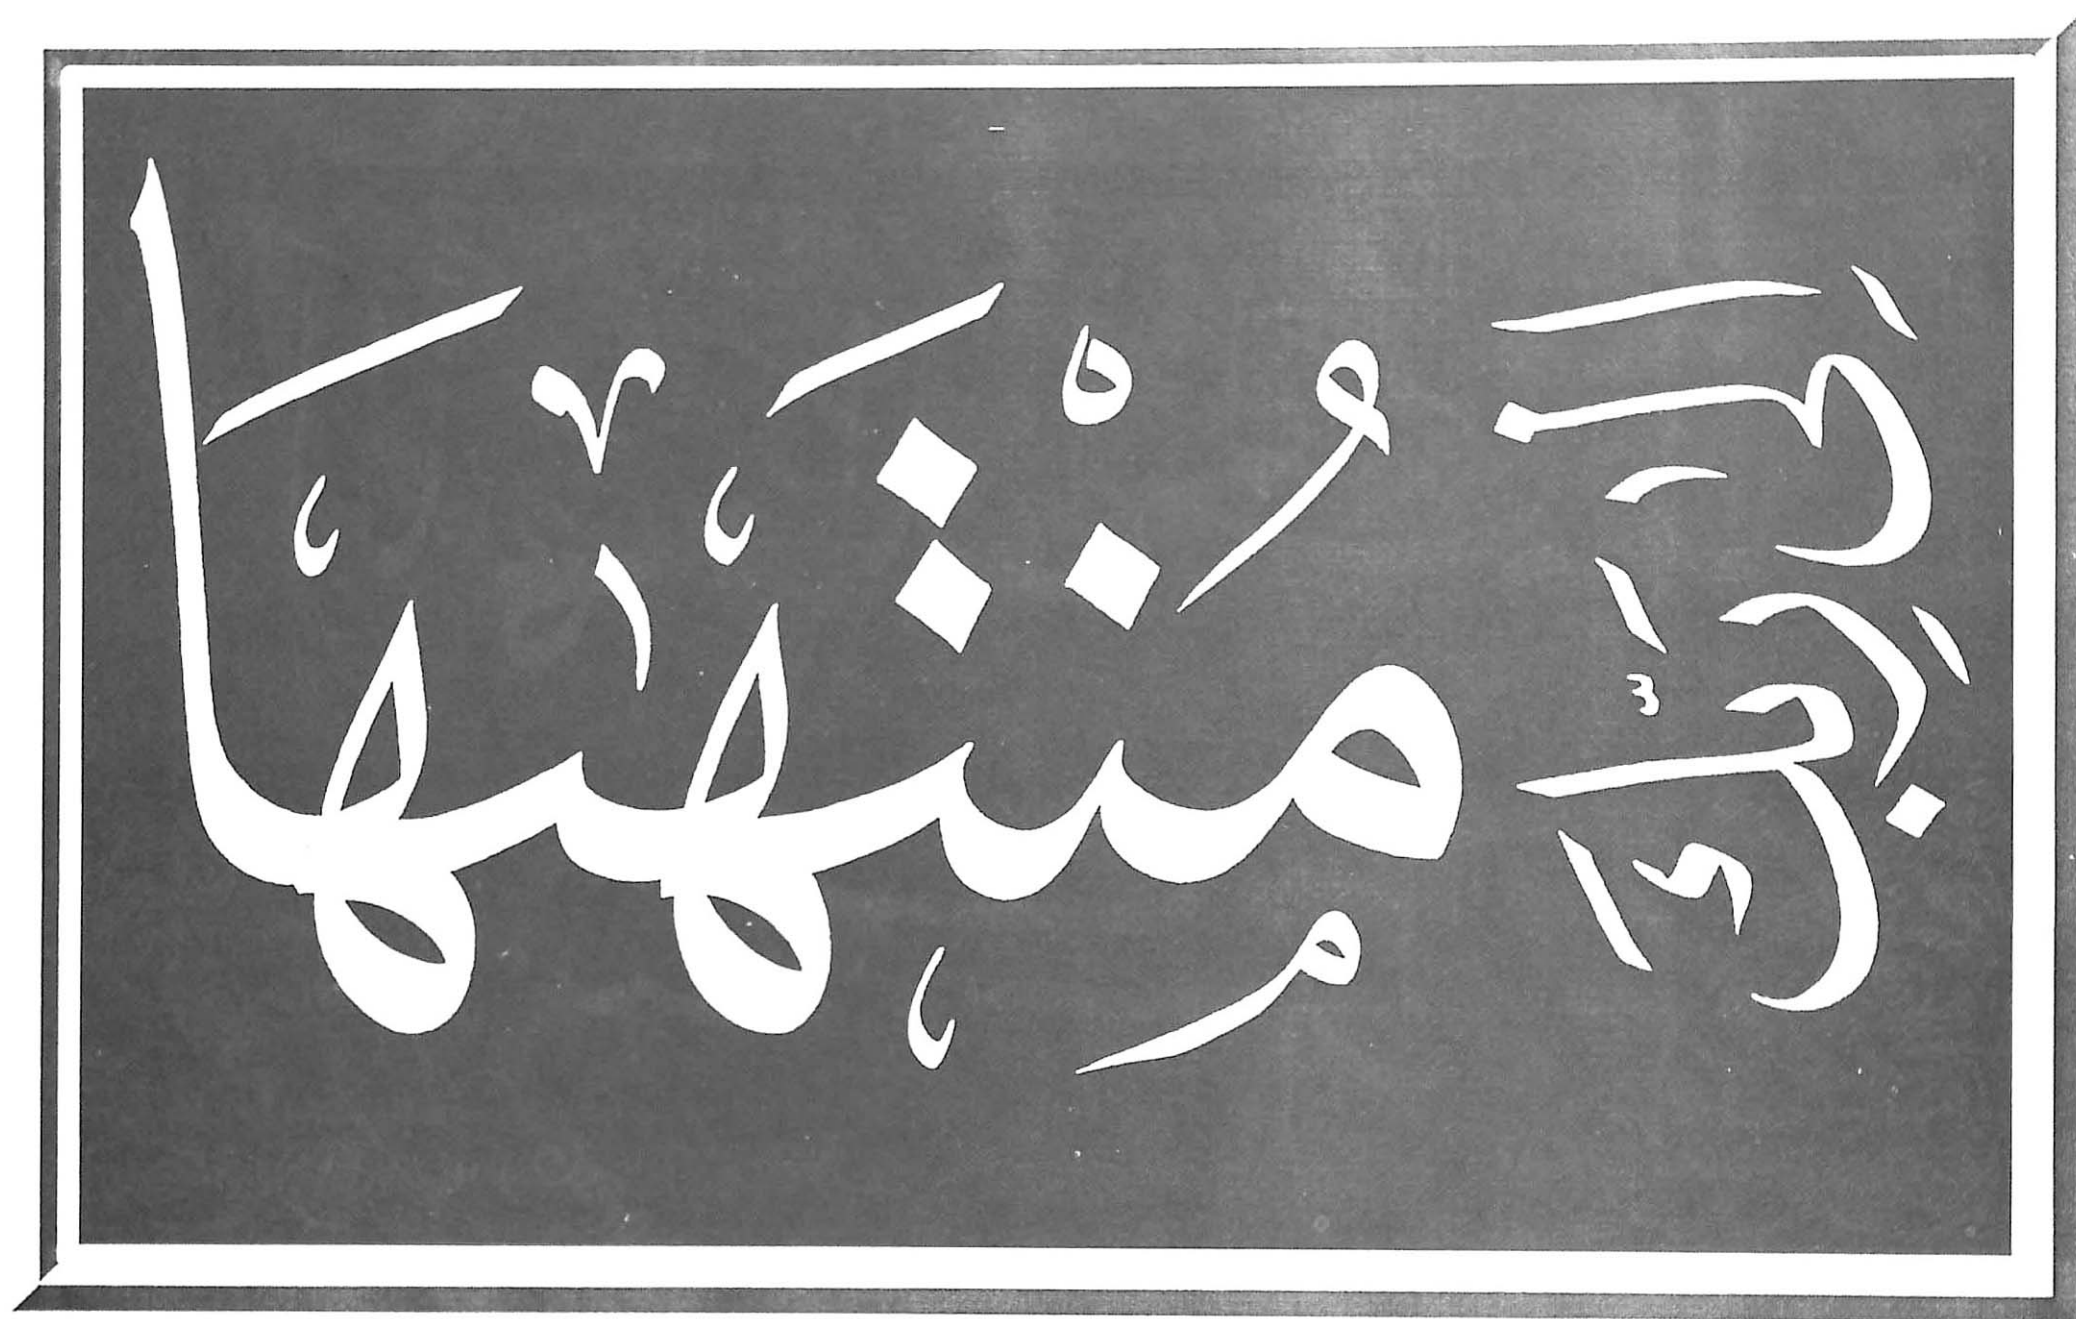 إِلَى رَبِّكَ
مُنْتَهَىٰهَا